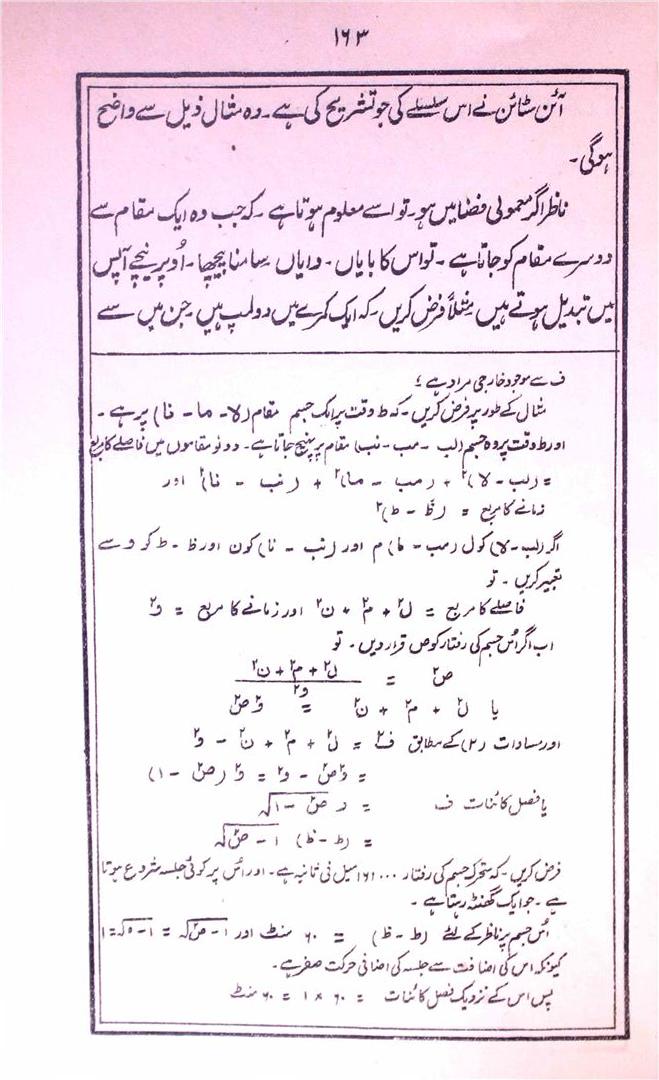 ۱۶۳
آئن سٹائن نے اس سلسلے کی جو تشریح کی ہے۔ وہ مثال ذیل سے واضح
ہوگی۔
ناظر اگر معمولی فضا میں ہو۔ تو اسے معلوم ہوتا ہے۔ کہ جب وہ ایک مقام سے
دوسرے مقام کو جاتا ہے۔ تو اس کا بایاں۔ دایاں سامنا پیچھا۔ اُوپر نیچے آپس
میں تبدیل ہوتے ہیں مثلاً فرض کریں۔ کہ ایک کمرے میں دو لمپ ہیں جن میں سے
ف سے موجود خارجی مراد ہے؛
مثال کے طور پر فرض کریں۔ کہ ط وقت پر ایک جسم مقام (لا۔ ما۔ نا) پر ہے۔
اور ظ وقت پر وہ جسم (لب ۔ مب ۔ نب) مقام پر پہنچ جاتا ہے۔ دونو مقاموں میں فاصلے کا مربع
= (لب - لا)۲ + (مب - ما)۲ + (نب - نا)۲ اور
زمانے کا مربع = (ظ - ط)۲
اگر (لب - لا) کو ل (مب - ما) م اور (نب - نا) کو ن اور ظ - ط کو و سے
تعبیر کریں۔ تو
فاصلے کا مربع = ل۲ + م۲ + ن۲ اور زمانے کا مربع = و۲
اب اگر اُس جسم کی رفتار کو ص قرار دیں۔ تو
ص۲ = (ل۲ + م۲ + ن۲) / و۲
یا ل۲ + م۲ + ن۲ = و۲ ص۲
اور مساوات (۲) کے مطابق ف۲ = ل۲ + م۲ + ن۲ - و۲
= و۲ص۲ - و۲ = و۲ (ص۲ - ۱)
یا فصل کائنات ف = و √(ص۲ - ۱)
= (ط - ظ) √(۱ - ص۲)
فرض کریں۔ کہ متحرک جسم کی رفتار ۱۶۱۰۰۰ میل فی ثانیہ ہے۔ اور اُس پر کوئی جلسہ شروع ہوتا
ہے۔ جو ایک گھنٹہ رہتا ہے۔
اُس جسم پر ناظر کے لئے (ط - ظ) = ۶۰ منٹ اور √(۱ - ص۲) = √(۱ - ۰) = ۱
کیونکہ اس کی اضافت سے جلسہ کی اضافی حرکت صفر ہے۔
پس اس کے نزدیک فصل کائنات = ۶۰ × ۱ = ۶۰ منٹ